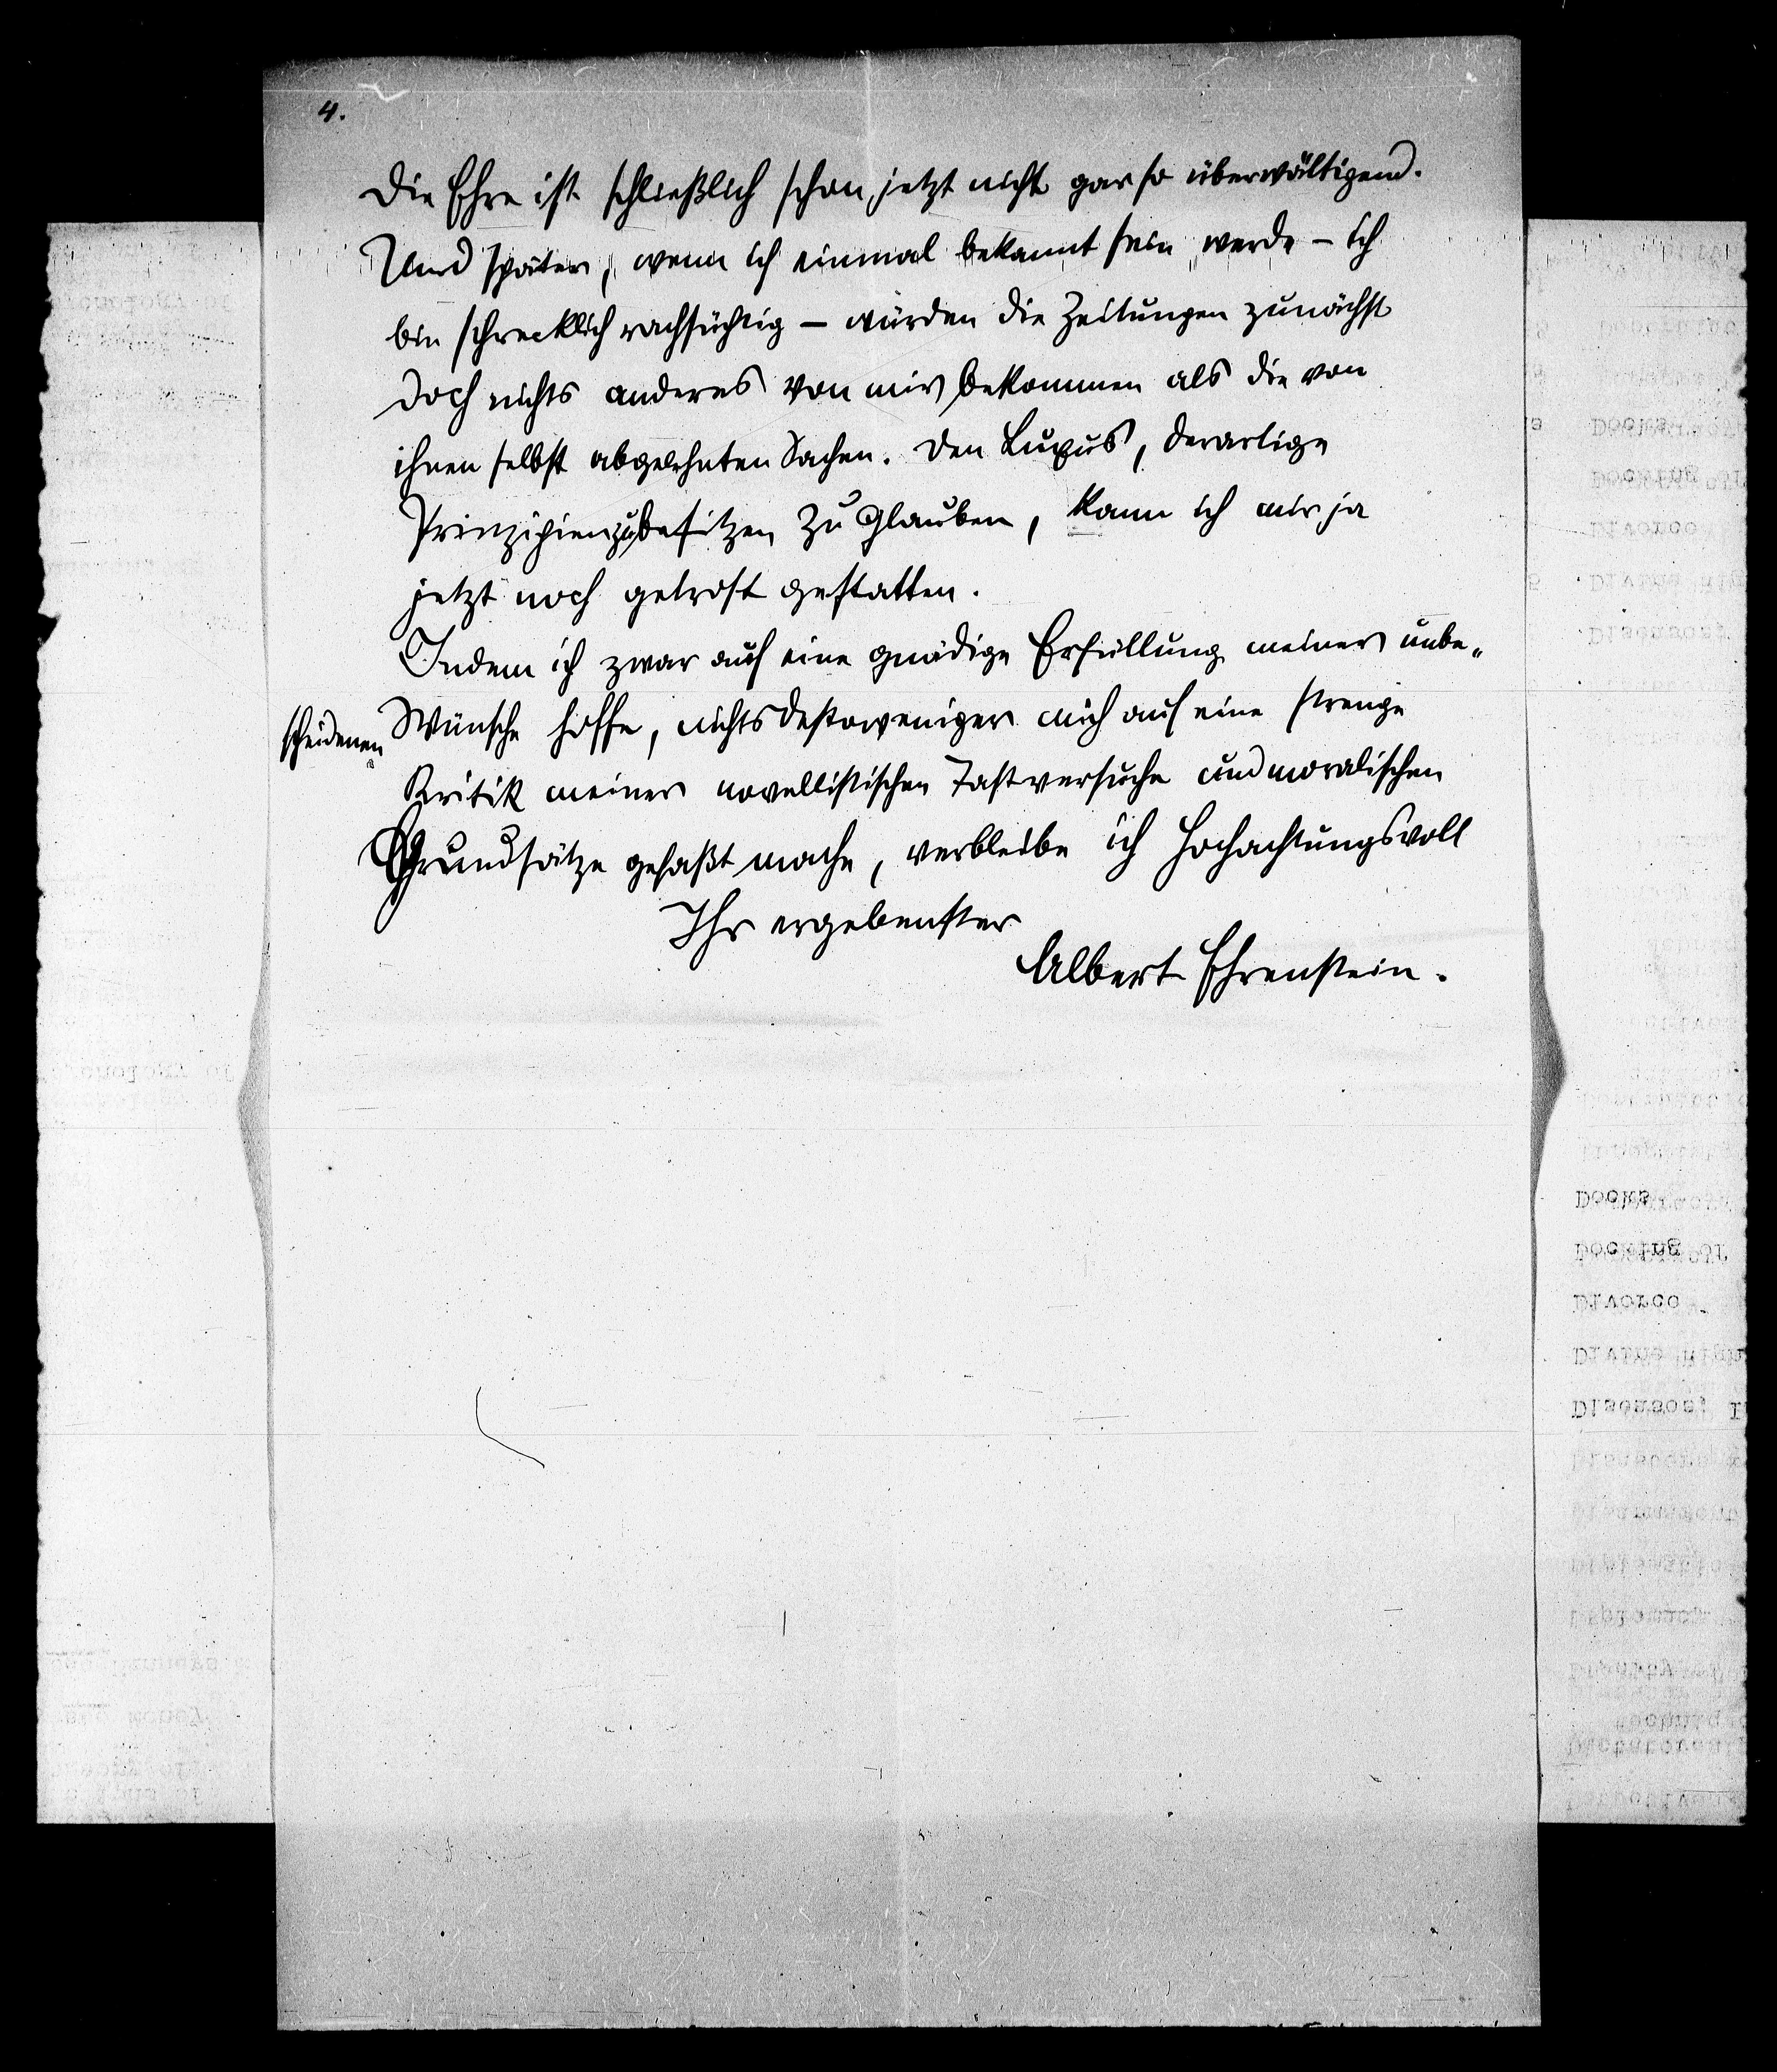 4.
Die Ehre ist schließlich schon jetzt nicht gar so überwältigend.
Und später, wenn ich einmal bekannt sein werde – ich
bin schrecklich rachsüchtig – würden die Zeitungen zunächst
doch nichts anderes von mir bekommen als die von
ihnen selbst abgelehnten Sachen. Den Luxus, derartige
Prinzipien zu besitzen zu glauben, kann ich mir ja
jetzt noch getrost gestatten.
Indem ich zwar auf eine gnädige Erfüllung meiner unbe-
scheidenen Wünsche hoffe, nichtsdestoweniger mich auf eine strenge
Kritik meiner novellistischen Tastversuche und moralischen
Grundsätze gefaßt mache, verbleibe ich hochachtungsvoll
Ihr ergebenster
Albert Ehrenstein.
Docks
Docking or
Divorce